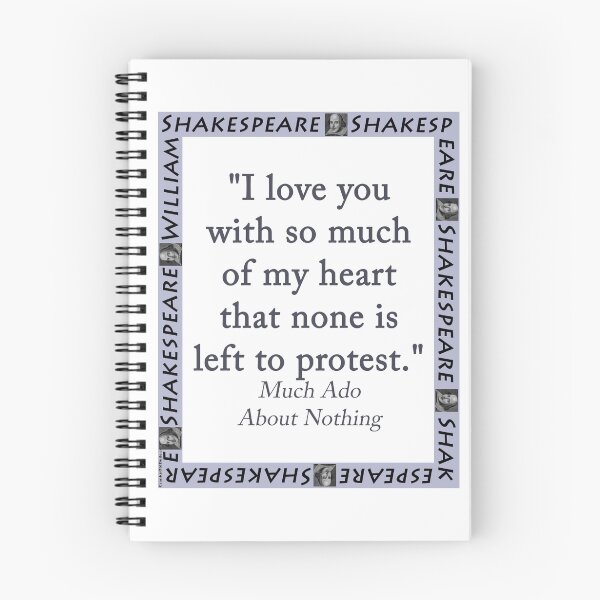 SHAKESPEARE SHAKESP
EARE SHAKESPEARE SHAK
ESPEARE SHAKESPEARE
SHAKESPEARE WILLIAM
"I love you
with so much
of my heart
that none is
left to protest."
Much Ado
About Nothing